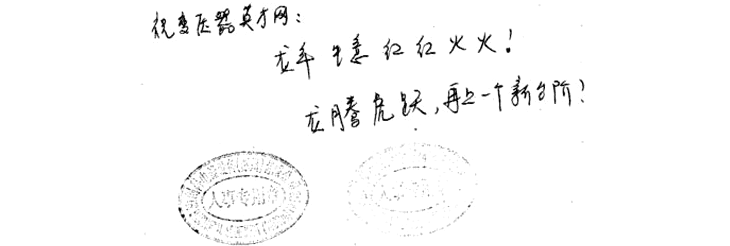 祝变压器英才网：
龙年生意红红火火！
龙腾虎跃，再上一个新台阶！
人事专用章